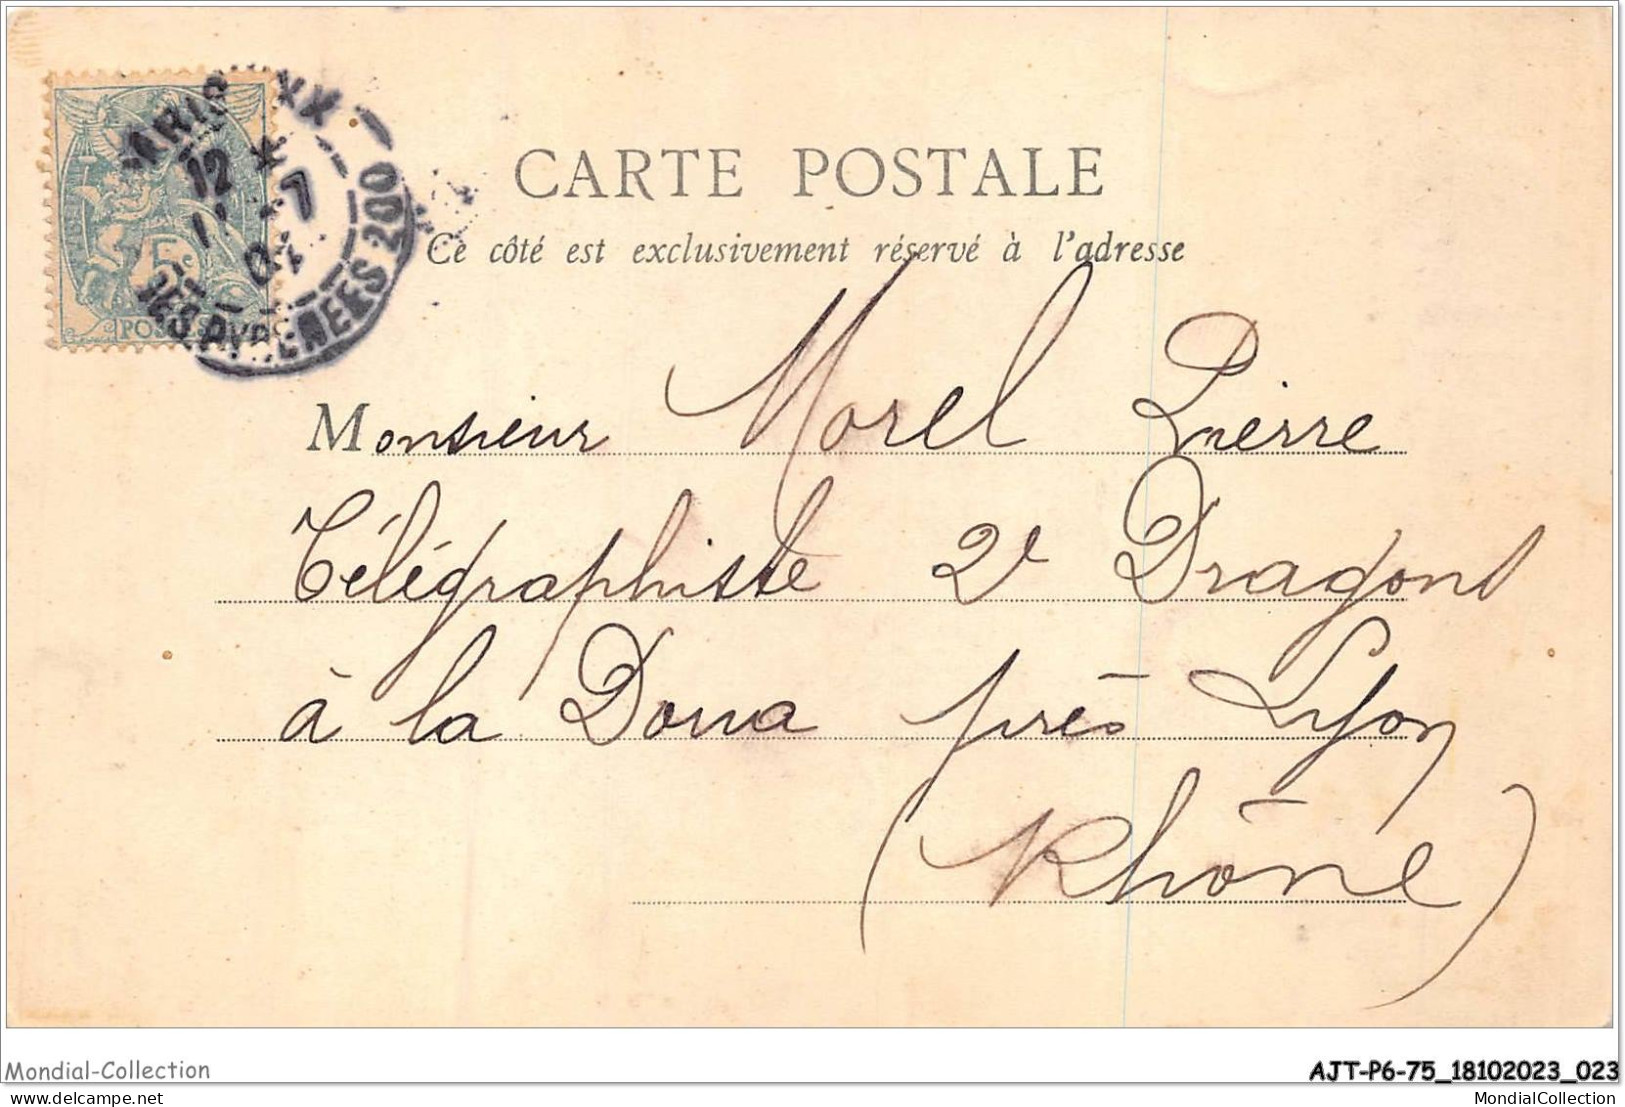 PARIS XX
12 *
11 -7
04
DES PYRENEES 200
5c
POSTES
CARTE POSTALE
Ce côté est exclusivement réservé à l'adresse
Monsieur Morel Pierre
Télégraphiste 2e Dragons
à la Doua près Lyon
(Rhône)
Mondial-Collection
AJT-P6-75_18102023_023
delcampe.net
MondialCollection